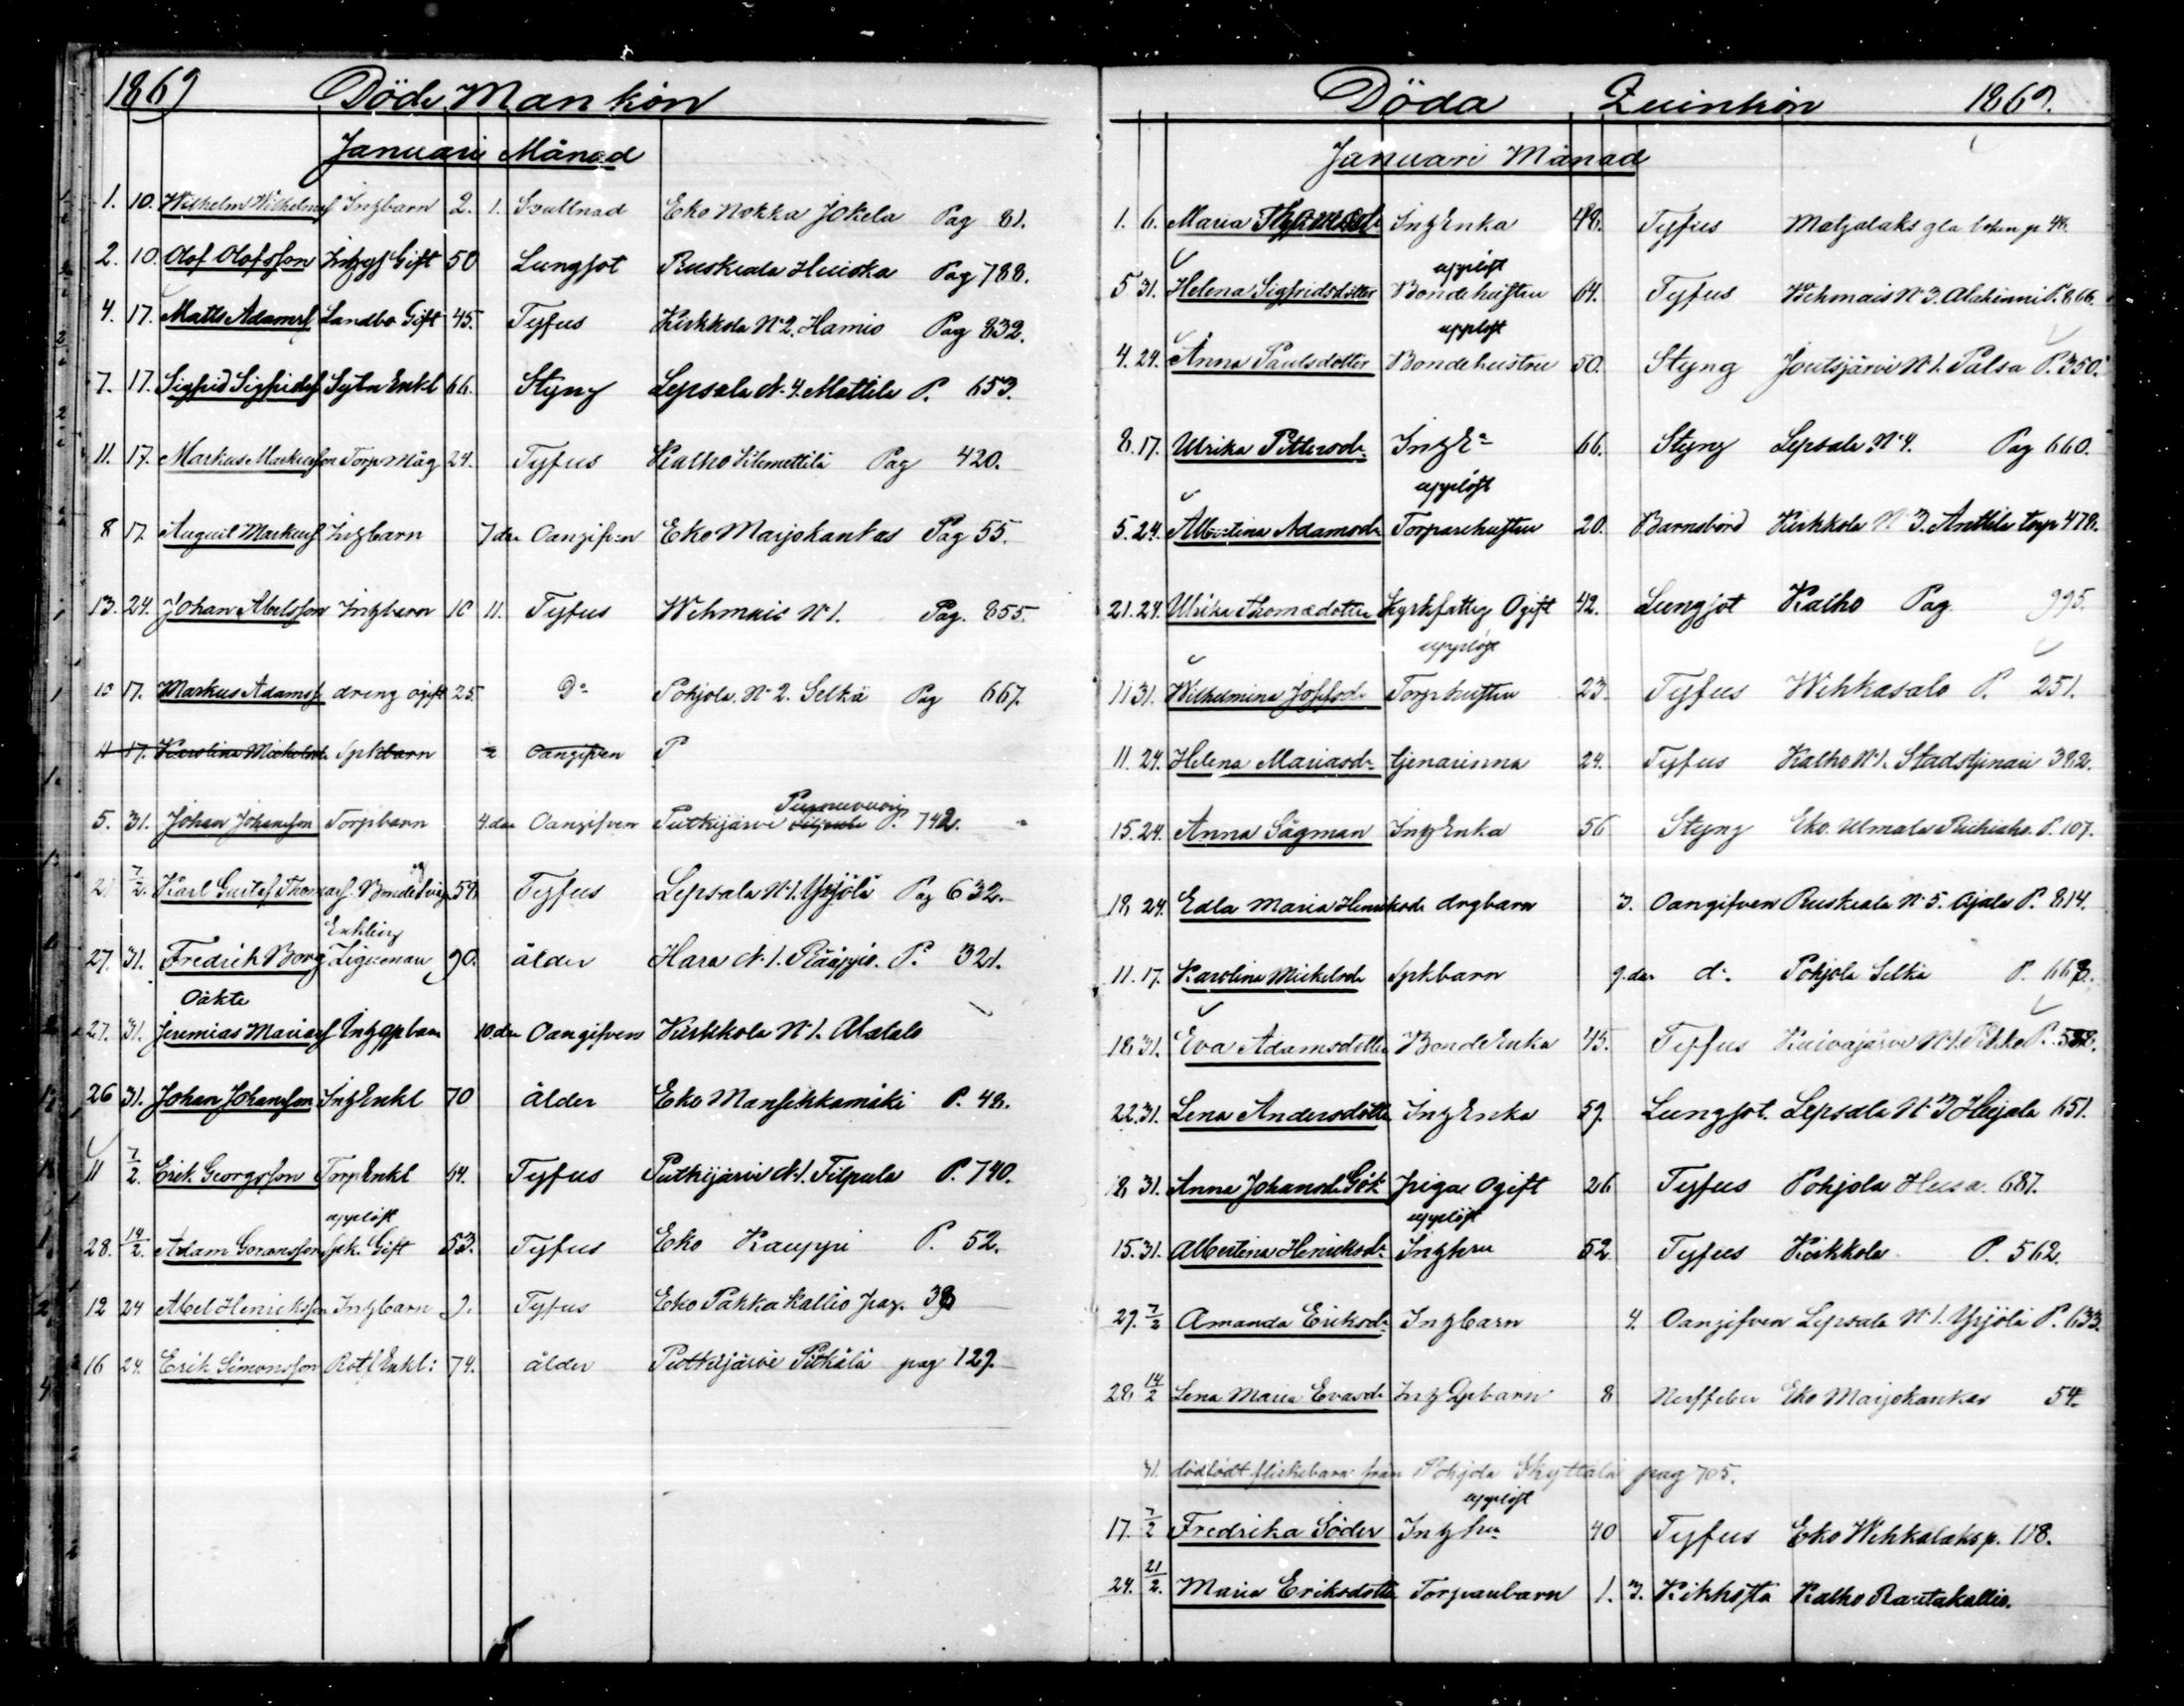 1869 Döde Mankön
Januari Månad
1. 10. Wilhelm Wilhelmsf Inhbarn 2. 1. Svullnad Eko Nokka Jokela Pag 81.
2. 10. Olof Olofsson Gift 50 Lungsot Ruskeala Huiska Pag 788.
4. 17. Matts Adamsf Landbo Gift 45. Tyfus Kirkkola No 2. Hamio Pag 832.
7. 17. Sigfrid Sigfridsf Sytn Enkl 66. Styng Lepsala N. 4. Mattila P. 653.
11. 17. Markus Markusson Torp Måg 24. Tyfus Kalho Pag 420.
8 17. August Markusf Inhbarn 7 dar Oangifven Eko Marjokankas Pag 55.
13. 24. Johan Abelsson Inhbarn 10 11. Tyfus Wehmais No 1. Pag. 855.
10 17. Markus Adamsf dreng ogift 25. Do Pohjola No 2. Selkä Pag 667.
11 17. Karolina Mickelsdr Spkbarn Oangifven P
5. 31. Johan Johansson Torpbarn 4 dar Oangifven Putkijärvi P. 742.
7/2. Karl Gustaf Thomasf. 59 Tyfus Lepsala No 1. Yrjölä Pag 632.
Enkling
27. 31. Fredrik Borg 90. ålder Hara N. 1. Rääppiö. P. 321.
Oäkta
27. 31. Jeremias Mariasf 10 dar Oangifven Kirkkola No 1. Alatalo
26 31. Johan Johansson Inh Enkl 70 ålder Eko Mansikkamäki P. 48.
11 7/2. Erik Georgsson Torp Enkl 64. Tyfus Putkijärvi N. 1. Filpula P. 740.
upplöst
28. 14/2. Adam Göransson Spk. Gift 53. Tyfus Eko Kauppi P. 52.
12 24 Abel Henriksson Inhbarn 9. Tyfus Eko Pakkakallio pag. 38
16 24. Erik Simonsson Rotf Enkl: 74. ålder Putkijärvi Pitkälä pag 129.
Döda Quinkön 1869.
Januari Månad
1. 6. Maria Inh Enka 48. Tyfus Matjalaks gla boken p 48.
upplöst
5 31. Helena Sigfridsdotter Bondehustru 64. Tyfus Wehmais No 3. Alakinni P. 866.
upplöst
4. 24. Anna Paulsdotter Bondehustru 50. Styng Joutsjärvi No 1. Palsa P. 350.
8. 17. Ulrika Pettersdr Inh Ea 66. Styng Lepsala No 4. Pag 660.
upplöst
5. 24. Albertina Adamsdr Torparehustru 20. Barnsbörd Kirkkola No 3. Anttila torp 478.
21. 24. Ulrika Thomædotter Kyrkfattig Ogift 42. Lungsot Kalho Pag. 995.
upplöst
11 31. Wilhelmina Josefsdr Torphustru 23. Tyfus Wihkasalo P. 251.
11. 24. Helena Mariasdr tjenarinna 24. Tyfus Kalho No 1. Stadstjenare 382.
15. 24. Anna Sågman Inh Enka 56 Styng Eko. Ulmala Riihiaho. P. 107.
18 24. Edla Maria Henriksdr drgbarn 3. Oangifven Ruskeala No 5. Ajala P. 814.
11. 17. Karolina Mickelsdr Spkbarn 9. dar do. Pohjola Selkä P. 668.
18 31. Eva Adamsdotter Bond Enka 45. Tyfus Kuivajärvi No 1. P.
22. 31. Lena Andersdotter Inh Enka 59. Lungsot. Lepsala No 3 Heijala 651.
18 31. Anna Johansdr Gök piga Ogift 26 Tyfus Pohjola Husa. 687.
upplöst
15. 31. Albertina Henriksdr Inhhu 52 Tyfus Kirkkola P. 562.
29. 7/2 Amanda Eriksdr Inhbarn 4. Oangifven Lepsala No 1. Yrjölä P. 633.
28. 14/2 Lena Maria Evasdr Inh Qpbarn 8 Nerffeber Eko Marjokankas 54.
31. dödfödt flickebarn från Pohjola Skyttälä pag 705.
upplöst
17. 7/2 Fredrika Söder Inh hu 40 Tyfus Eko Wihkalaks p. 118.
24. 21/2. Maria Eriksdotter Torparebarn 1. 3. Kikhosta Kalho Rautakallio.